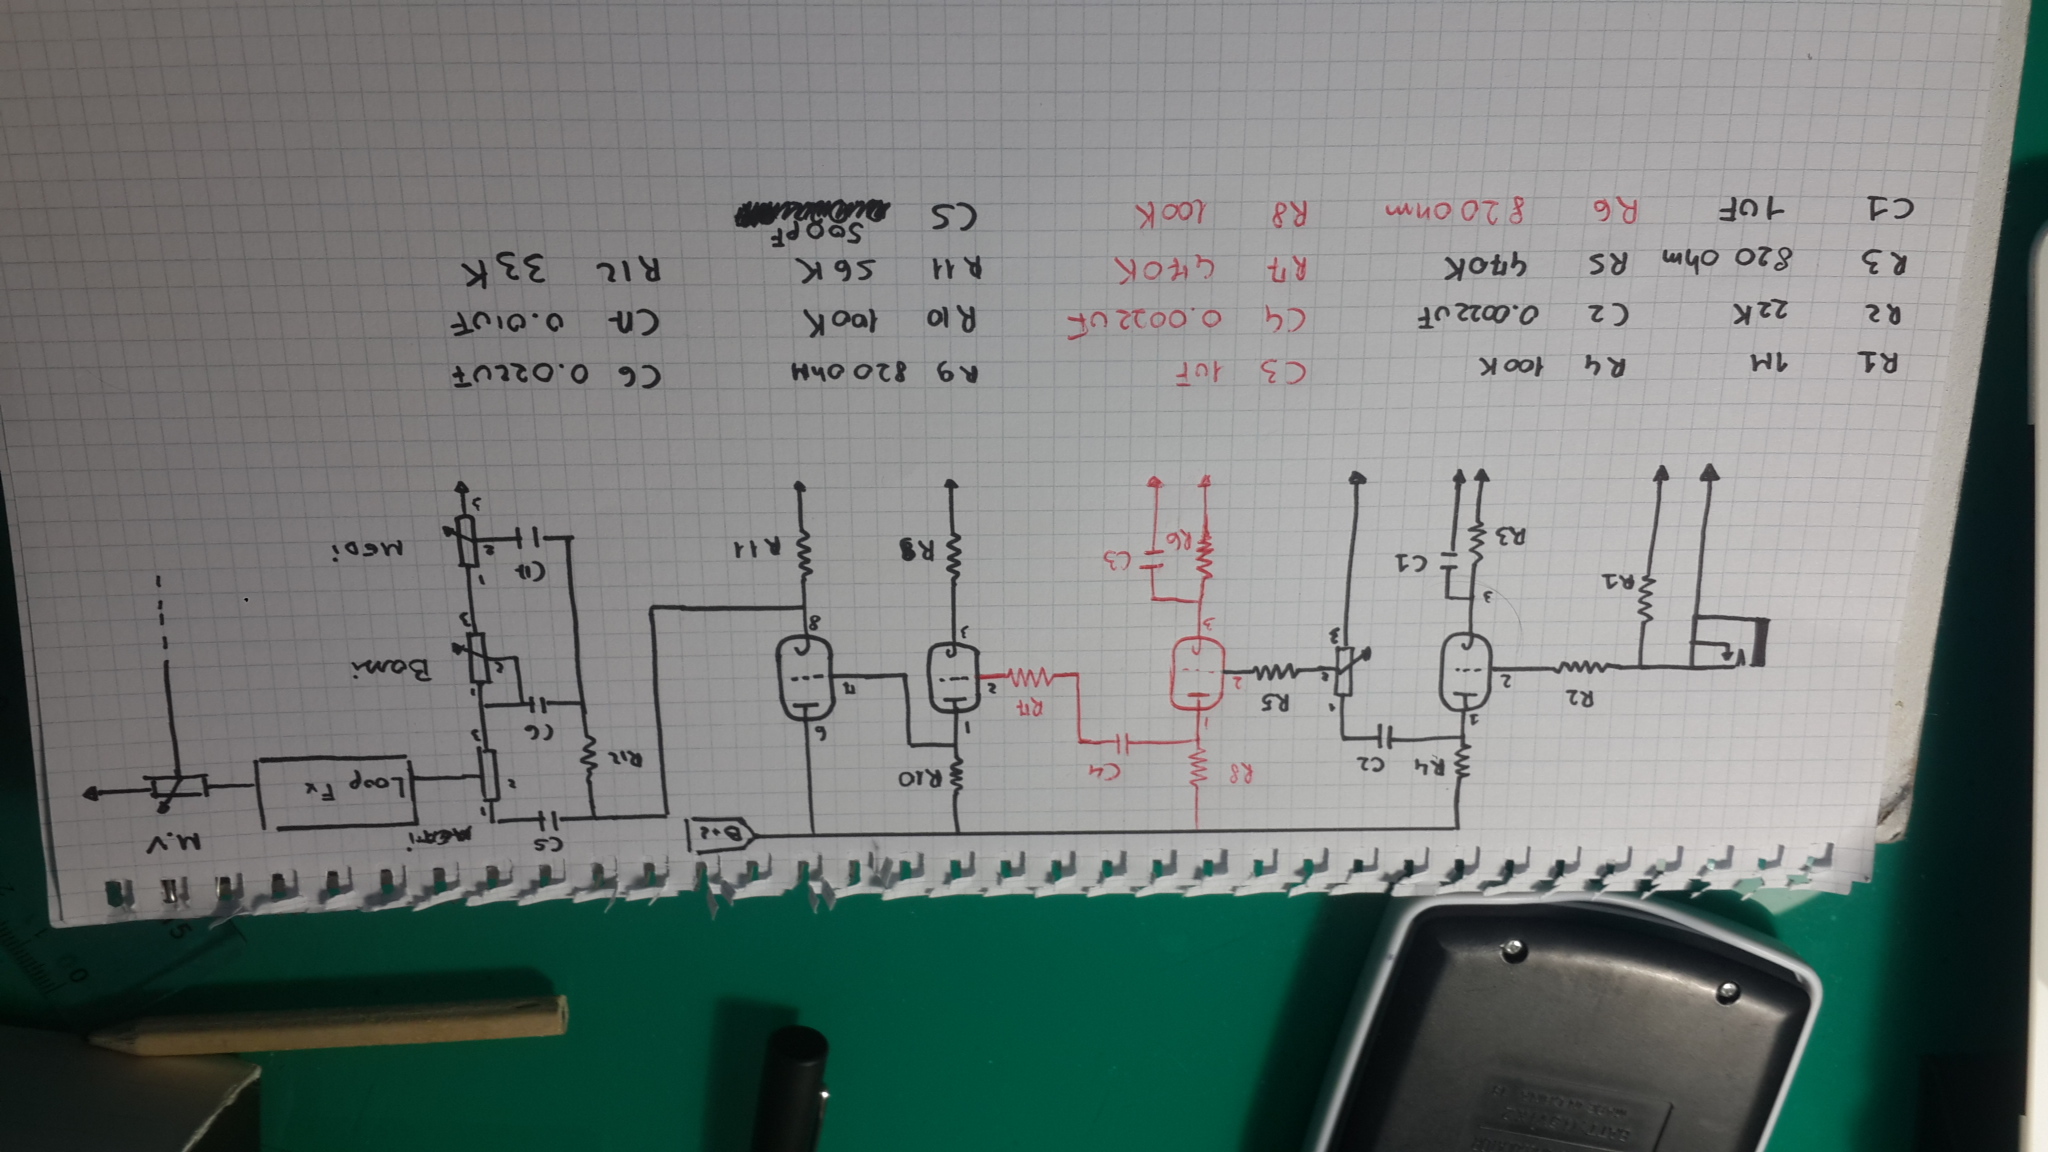 M.V
Loop Fx
C5
B+2
R12
C6
Bassi
Medi
R11
R10
R9
C4
R8
R7
C3
R6
C2
R4
R5
C1
R3
R2
R1
1
2
3
6
7
8
R1 1M R4 100K C3 1uF R9 820 ohm C6 0.022uF
R2 22K C2 0.0022uF C4 0.0022uF R10 100K C7 0.01uF
R3 820 ohm R5 470K R7 470K R11 56K R12 33K
C1 1uF R6 820 ohm R8 100K C5 500pF